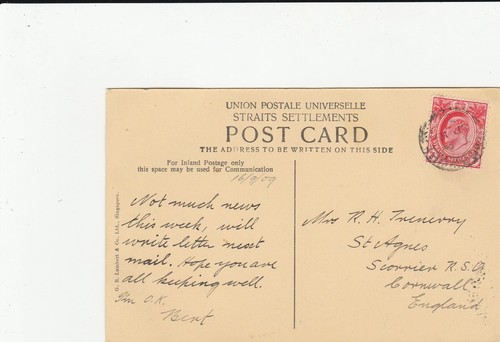 UNION POSTALE UNIVERSELLE
STRAITS SETTLEMENTS
POST CARD
THE ADDRESS TO BE WRITTEN ON THIS SIDE
For Inland Postage only
this space may be used for Communication
16/9/09
Not much news
this week, will
write letter next
mail. Hope you are
all keeping well.
I'm O.K.
Bert
Mrs R. H. Trenerry
St Agnes
Scorrier R.S.O.
Cornwall
England
G. R. Lambert & Co., Ltd., Singapore.